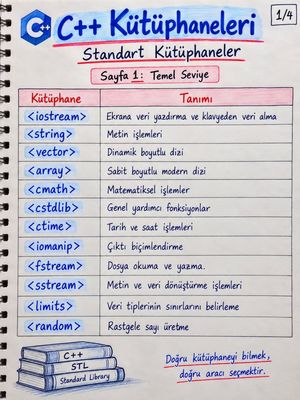 C++
C++ Kütüphaneleri
1/4
Standart Kütüphaneler
Sayfa 1: Temel Seviye
Kütüphane Tanımı
<iostream> Ekrana veri yazdırma ve klavyeden veri alma
<string> Metin işlemleri
<vector> Dinamik boyutlu dizi
<array> Sabit boyutlu modern dizi
<cmath> Matematiksel işlemler
<cstdlib> Genel yardımcı fonksiyonlar
<ctime> Tarih ve saat işlemleri
<iomanip> Çıktı biçimlendirme
<fstream> Dosya okuma ve yazma.
<sstream> Metin ve veri dönüştürme işlemleri
<limits> Veri tiplerinin sınırlarını belirleme
<random> Rastgele sayı üretme
C++
STL
Standard Library
Doğru kütüphaneyi bilmek,
doğru aracı seçmektir.